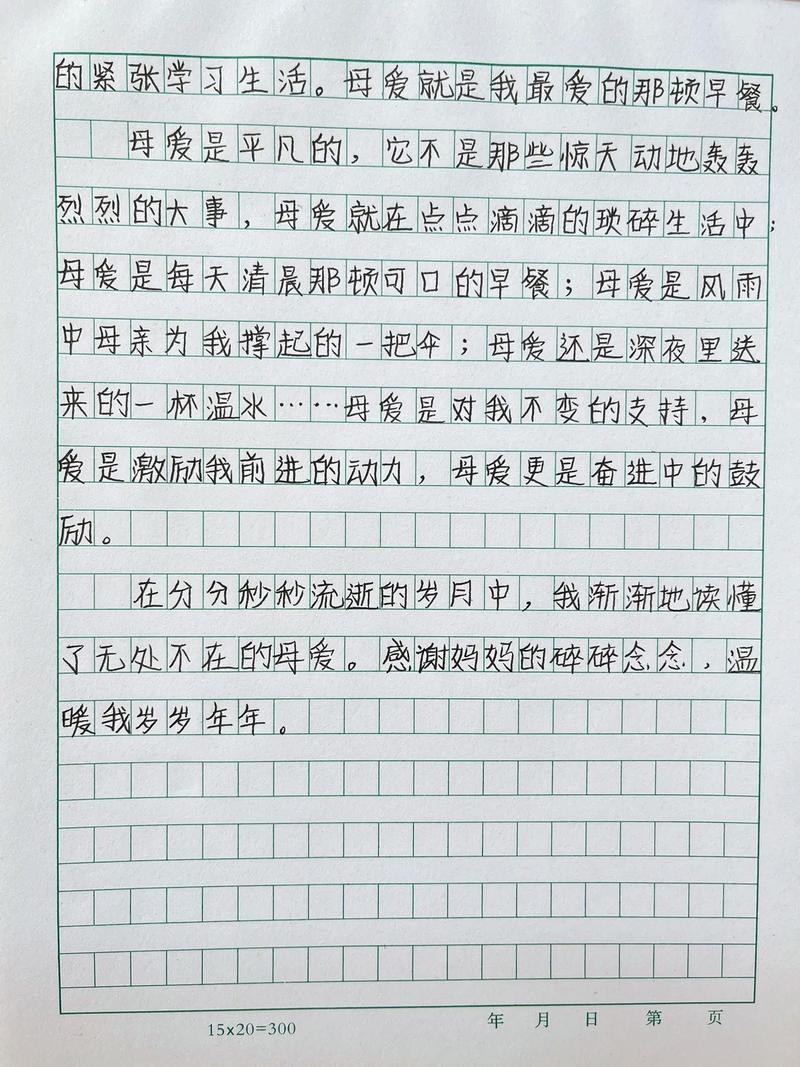 的紧张学习生活。母爱就是我最爱的那顿早餐。
母爱是平凡的，它不是那些惊天动地轰轰
烈烈的大事，母爱就在点点滴滴的琐碎生活中；
母爱是每天清晨那顿可口的早餐；母爱是风雨
中母亲为我撑起的一把伞；母爱还是深夜里送
来的一杯温水……母爱是对我不变的支持，母
爱是激励我前进的动力，母爱更是奋进中的鼓
励。
在分分秒秒流逝的岁月中，我渐渐地读懂
了无处不在的母爱。感谢妈妈的碎碎念念，温
暖我岁岁年年。
15×20=300 年 月 日 第 页